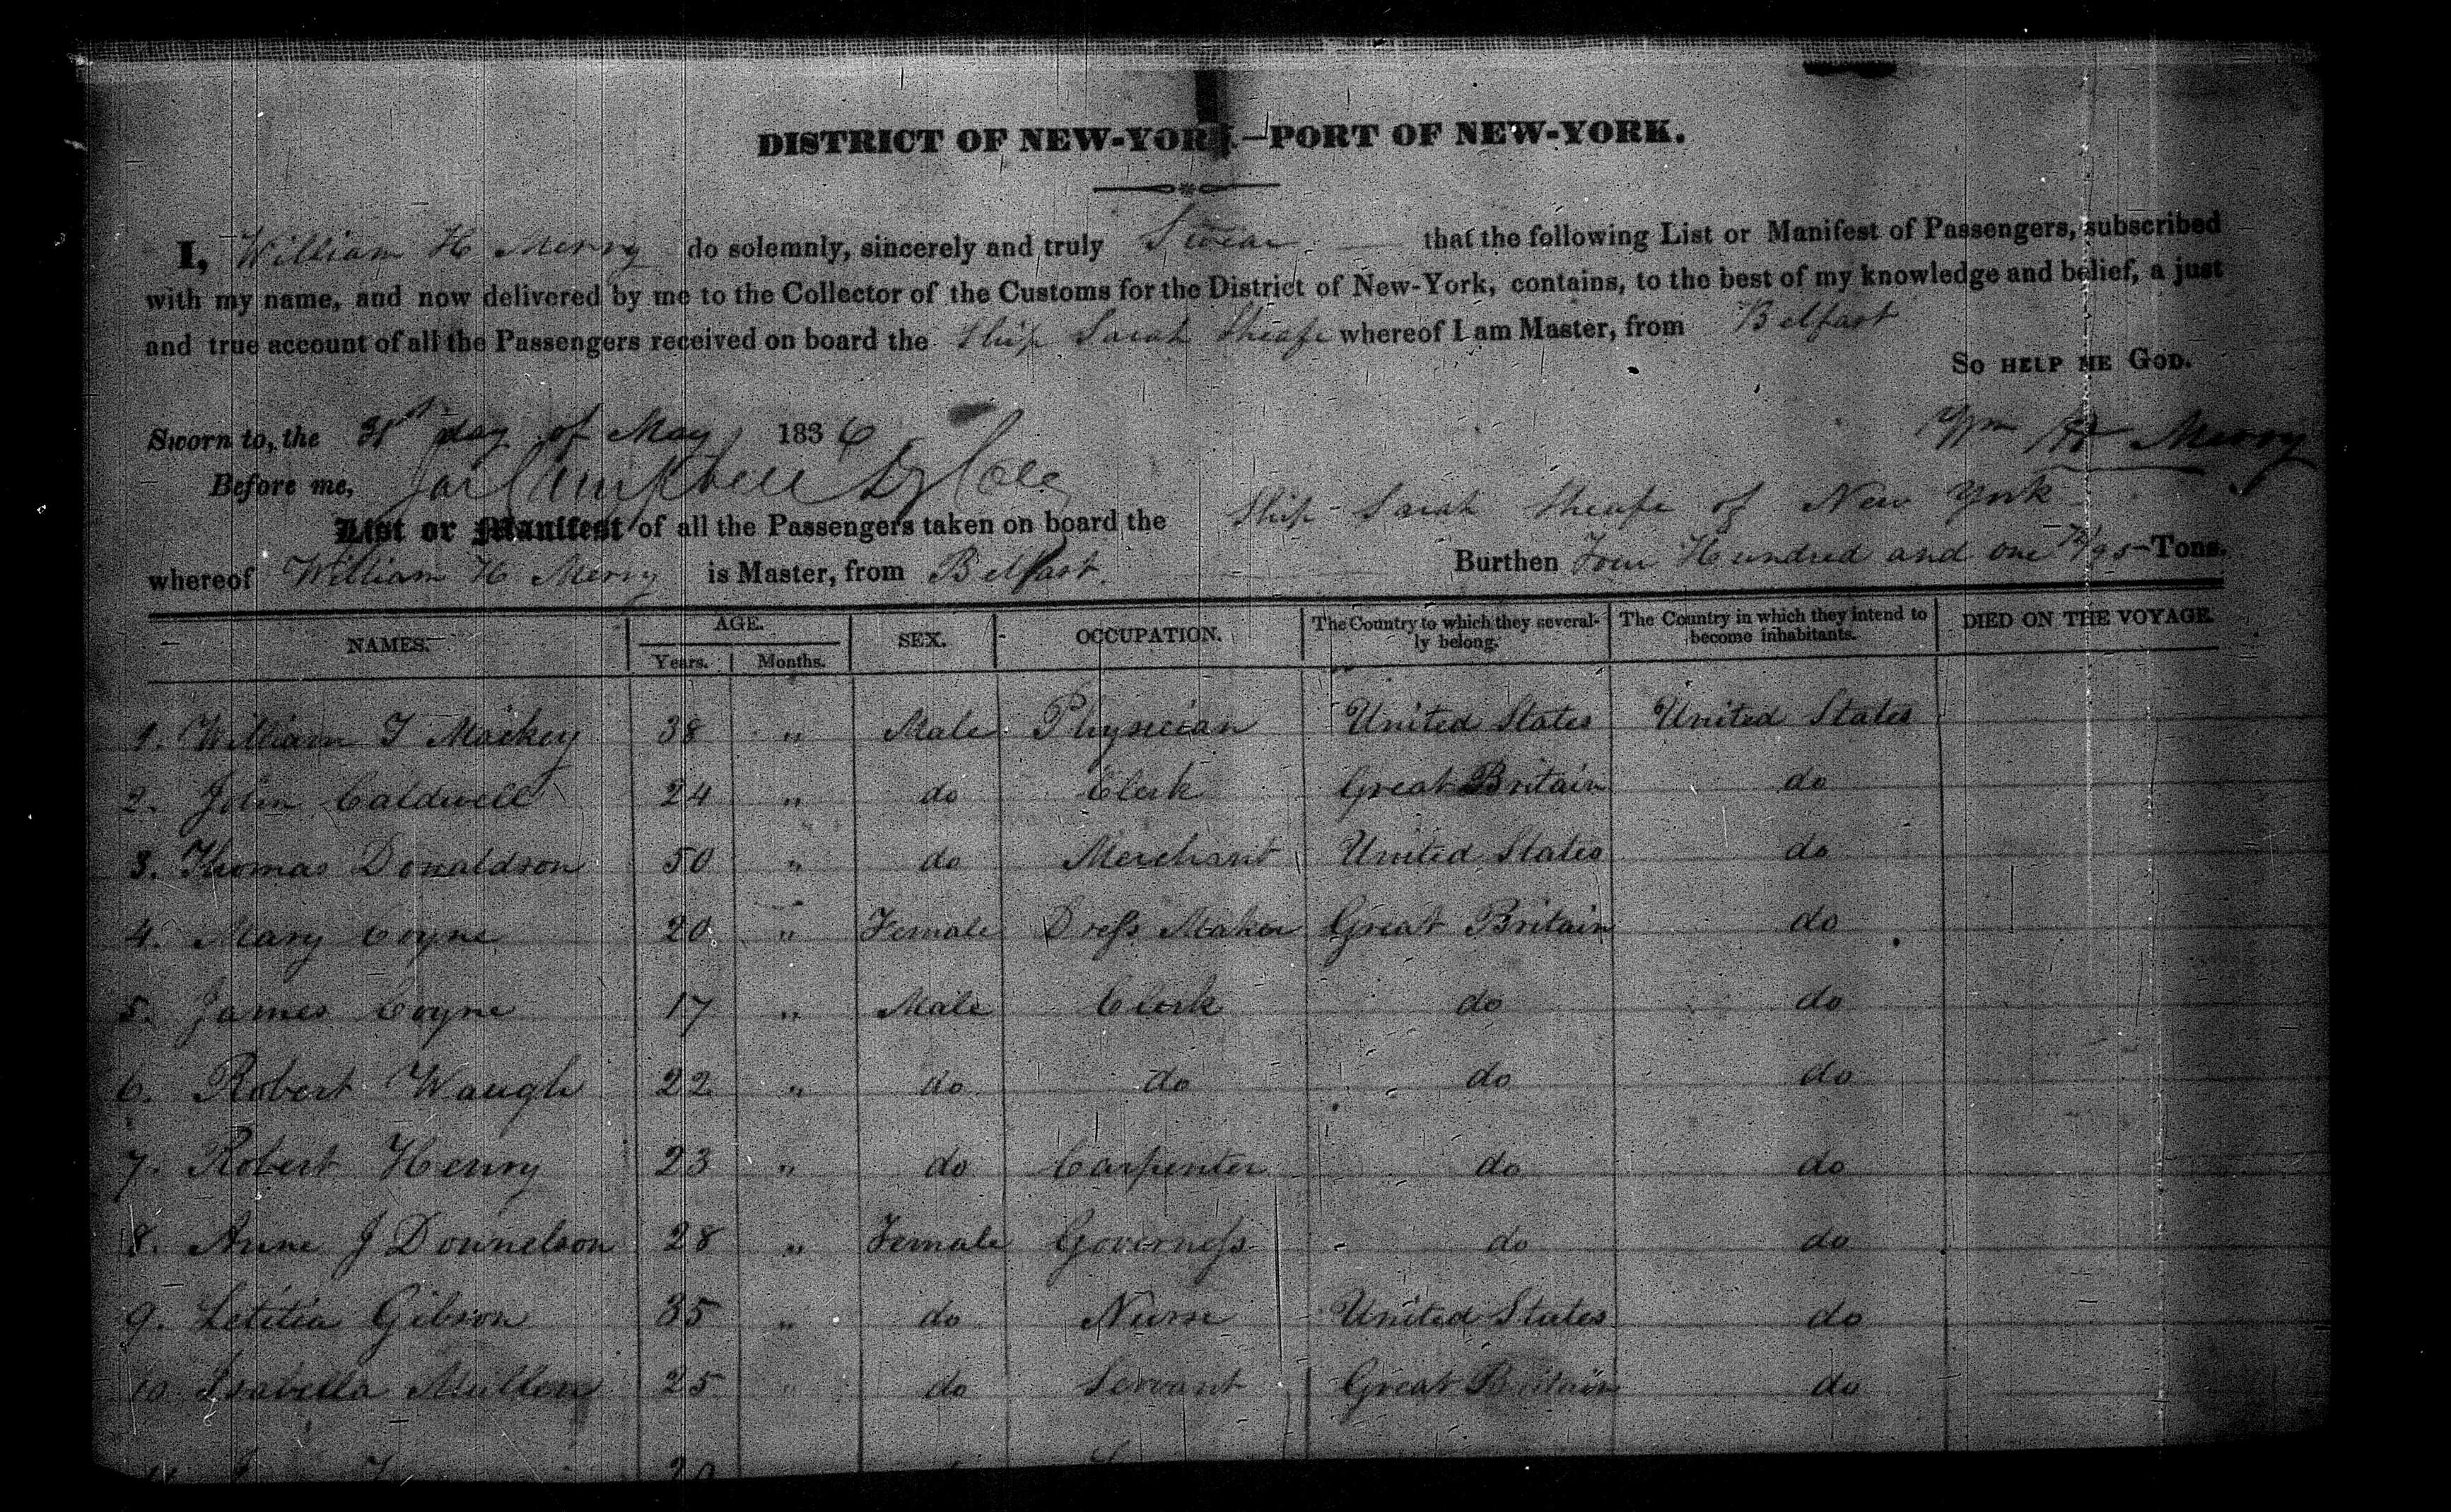 DISTRICT OF NEW-YORK—PORT OF NEW-YORK.
I, William H Merry do solemnly, sincerely and truly Swear that the following List or Manifest of Passengers, subscribed
with my name, and now delivered by me to the Collector of the Customs for the District of New-York, contains, to the best of my knowledge and belief, a just
and true account of all the Passengers received on board the Ship Sarah Sheafe whereof I am Master, from Belfast
SO HELP ME GOD.
Sworn to, the 31st day of May 1836
Wm H Merry
Before me, Jas Campbell Dy Coll
List or Manifest of all the Passengers taken on board the Ship Sarah Sheafe of New York
whereof William H Merry is Master, from Belfast. Burthen Four Hundred and one 72/95 Tons.
NAMES. AGE. SEX. OCCUPATION. The Country to which they several- The Country in which they intend to DIED ON THE VOYAGE.
Years. Months. ly belong. become inhabitants.
1. William T Mackey 38 " Male Physician United States United States
2. John Caldwell 24 " do Clerk Great Britain do
3. Thomas Donaldson 50 " do Merchant United States do
4. Mary Coyne 20 " Female Dress Maker Great Britain do
5. James Coyne 17 " Male Clerk do do
6. Robert Waugh 22 " do do do do
7. Robert Henry 23 " do Carpenter do do
8. Anne J Donnelson 28 " Female Governess do do
9. Letitia Gibson 35 " do Nurse United States do
10 Isabella Mullen 25 " do Servant Great Britain do